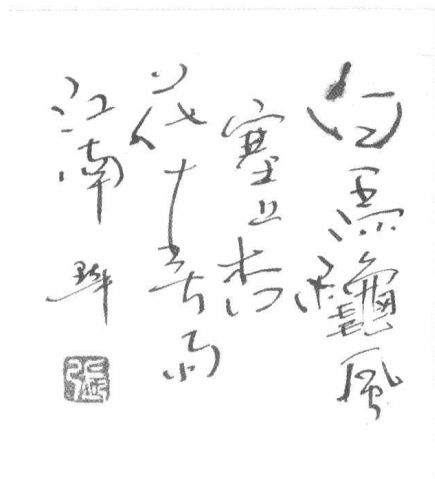 白馬龝風
塞上杏
花春雨
江南
張